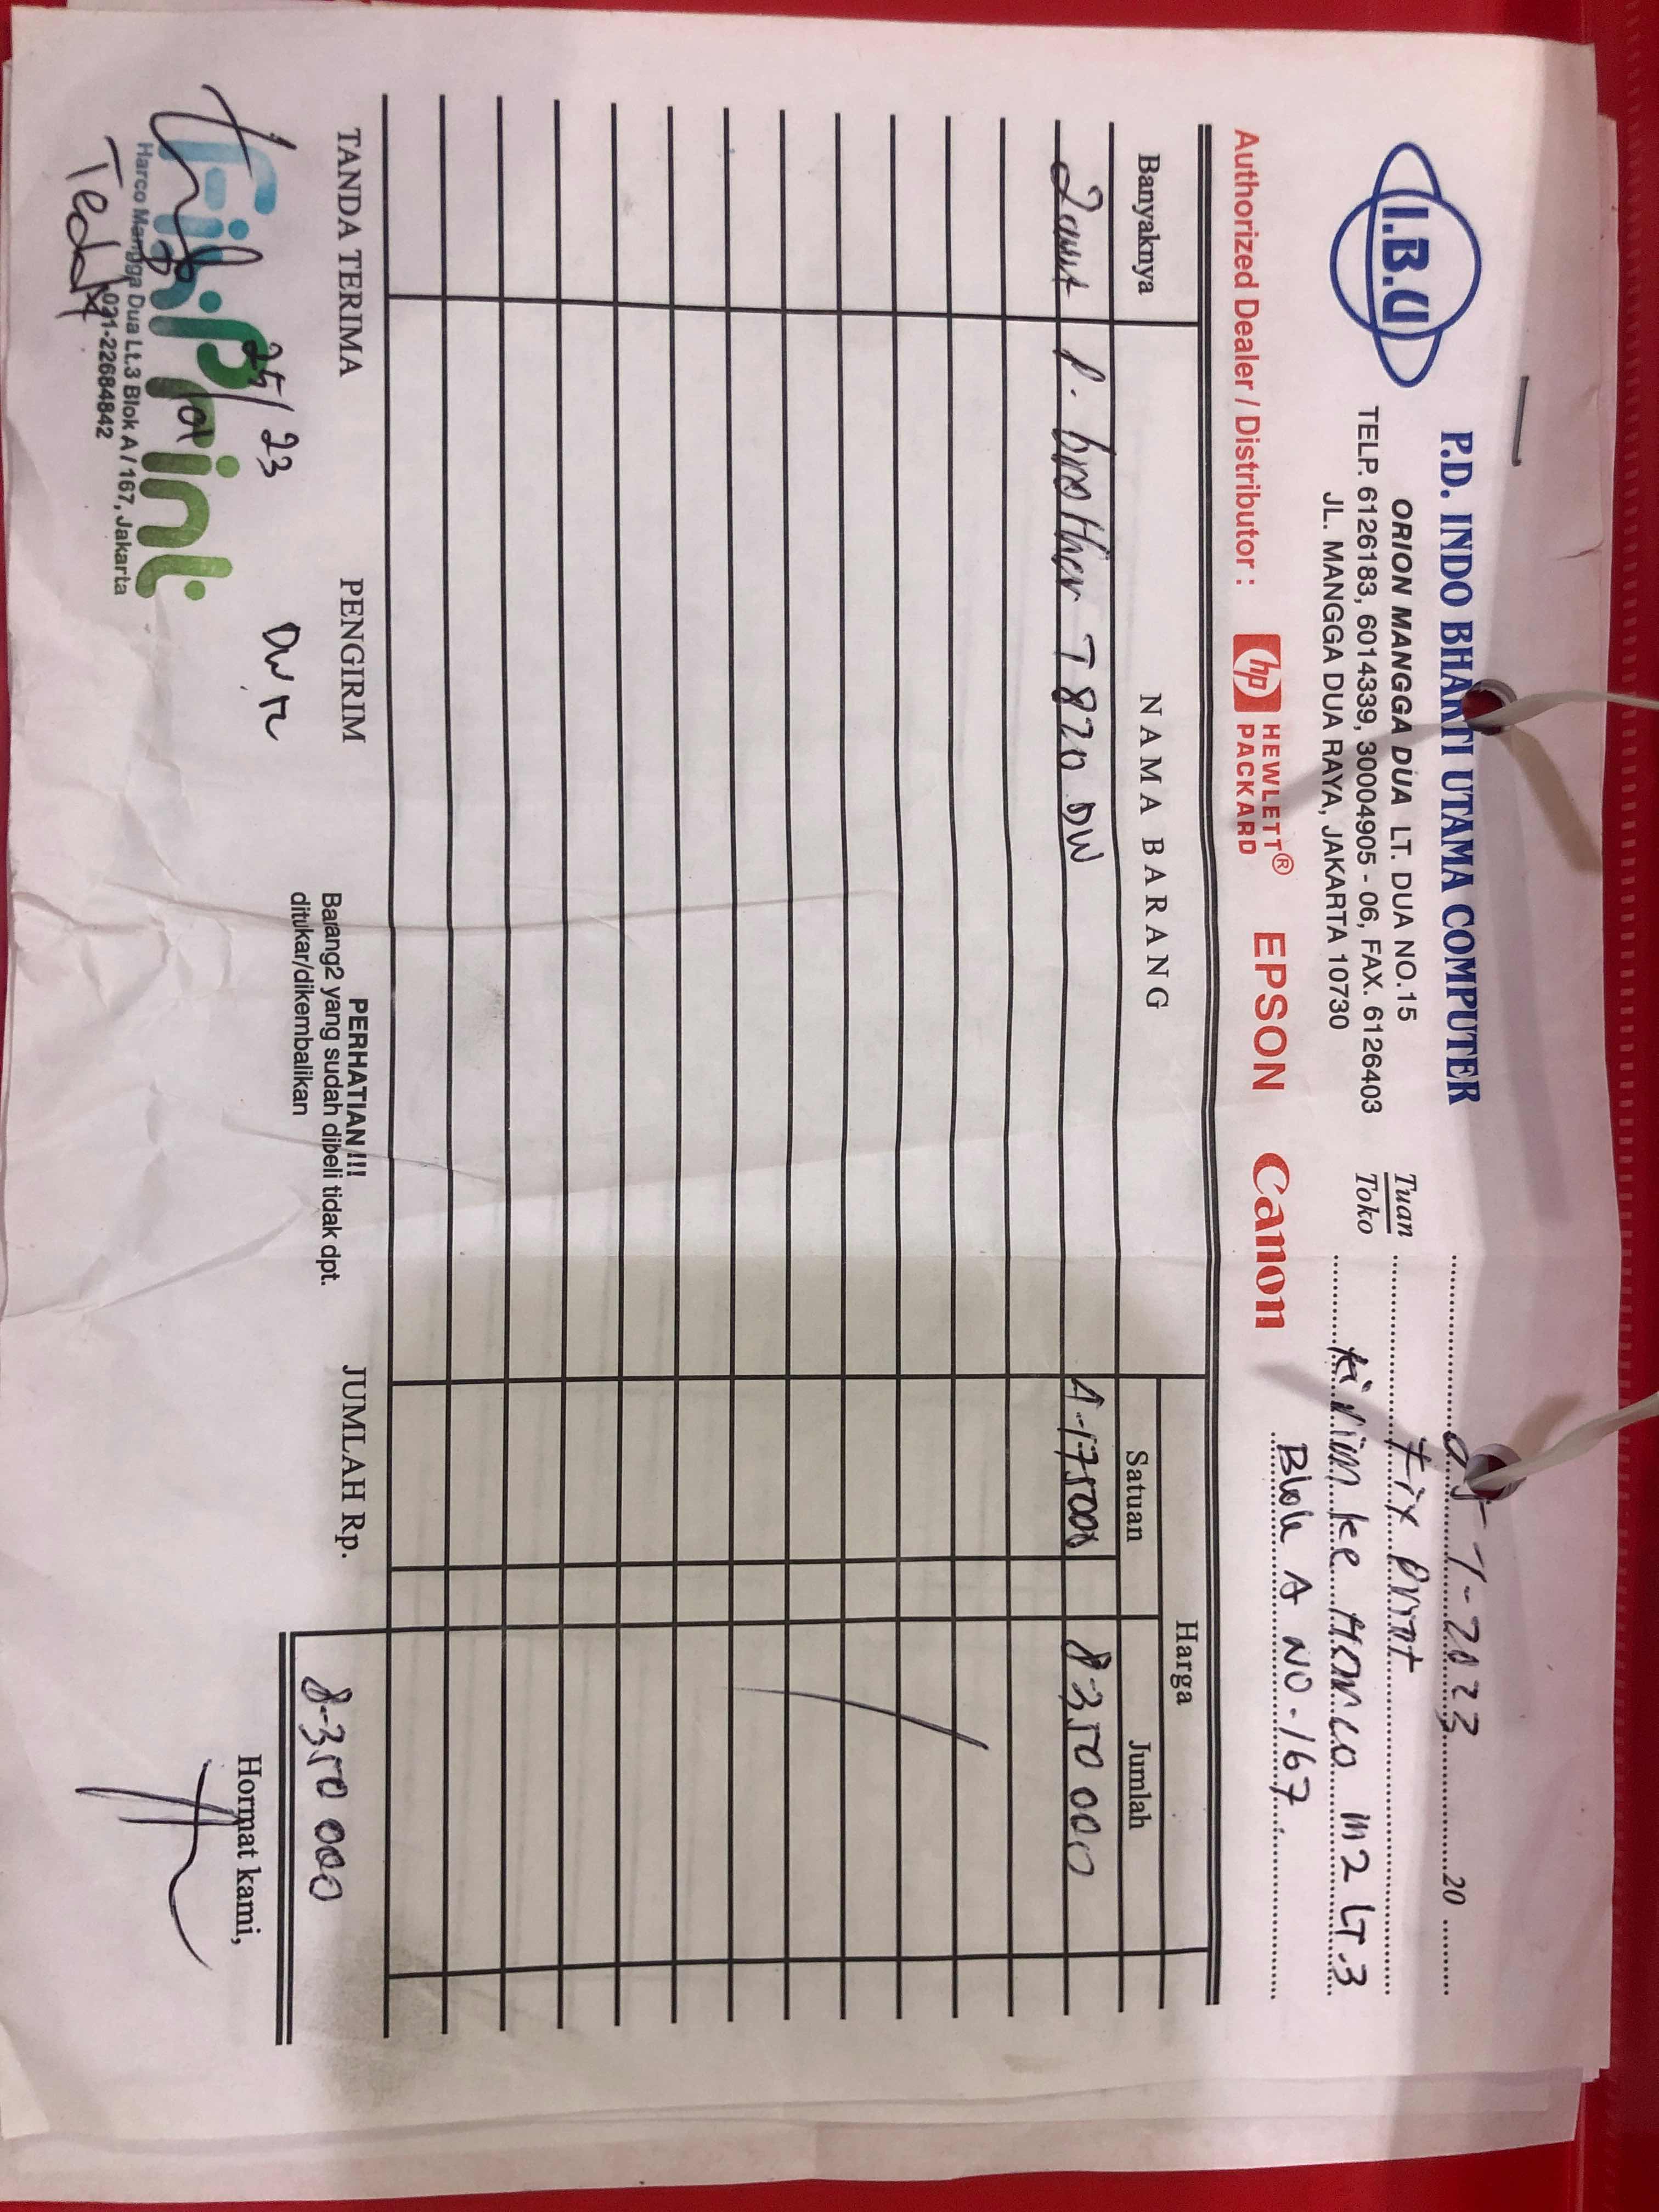 I.B.U
P.D. INDO BHAKTI UTAMA COMPUTER
ORION MANGGA DUA LT. DUA NO.15
TELP. 6126183, 6014339, 30004905 - 06, FAX. 6126403
JL. MANGGA DUA RAYA, JAKARTA 10730
1-2023 20
Tuan
Toko
Fix Print
kirim ke Harco M2 LT.3
Blok A NO.167
Authorized Dealer / Distributor :
hp HEWLETT® PACKARD
EPSON
Canon
Banyaknya NAMA BARANG Harga
Satuan Jumlah
2 unit P. brother T 820 DW 4.175000 8.350 000
TANDA TERIMA PENGIRIM
PERHATIAN !!!
Barang2 yang sudah dibeli tidak dpt.
ditukar/dikembalikan
JUMLAH Rp. 8.350 000
Hormat kami,
25/01 23
fix Print
Harco Mangga Dua Lt.3 Blok A / 167, Jakarta
021-22684842
Teddy